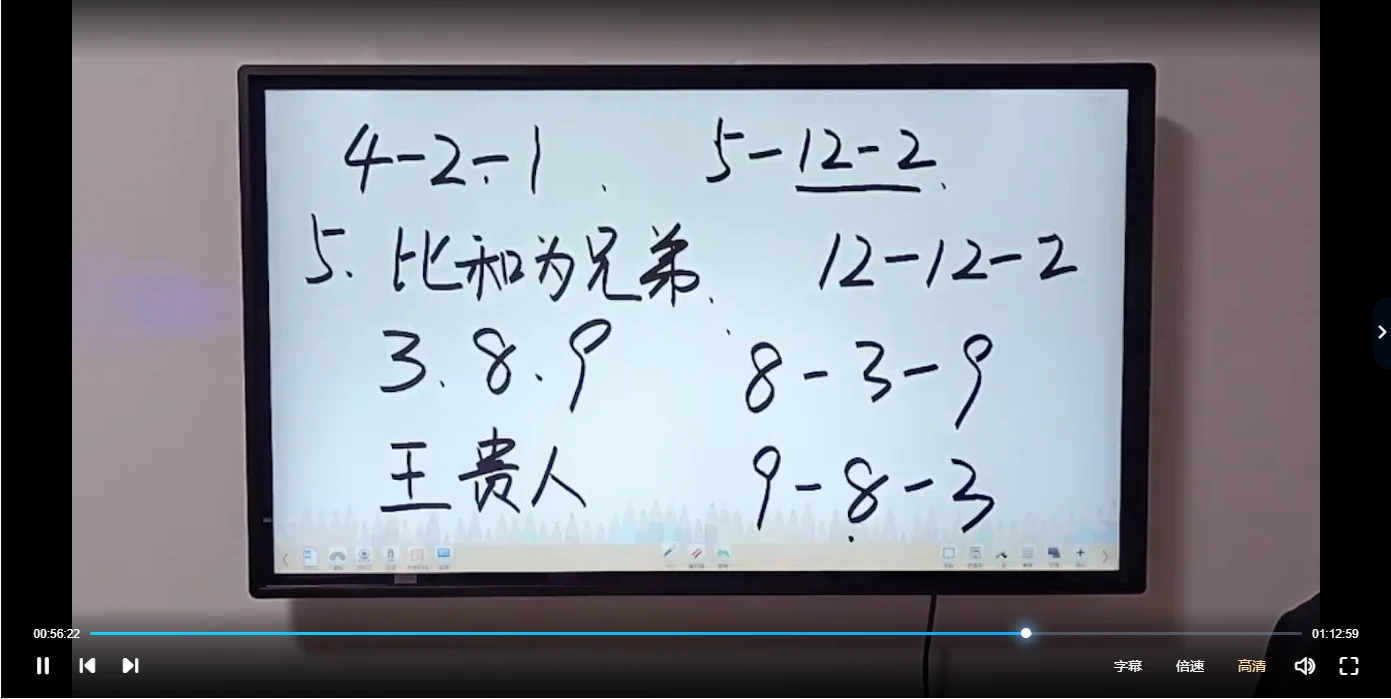 4-2-1 5-12-2
5. 比和为兄弟 12-12-2
3. 8. 9 8-3-9
王贵人 9-8-3
00:56:22 01:12:59
字幕 倍速 高清